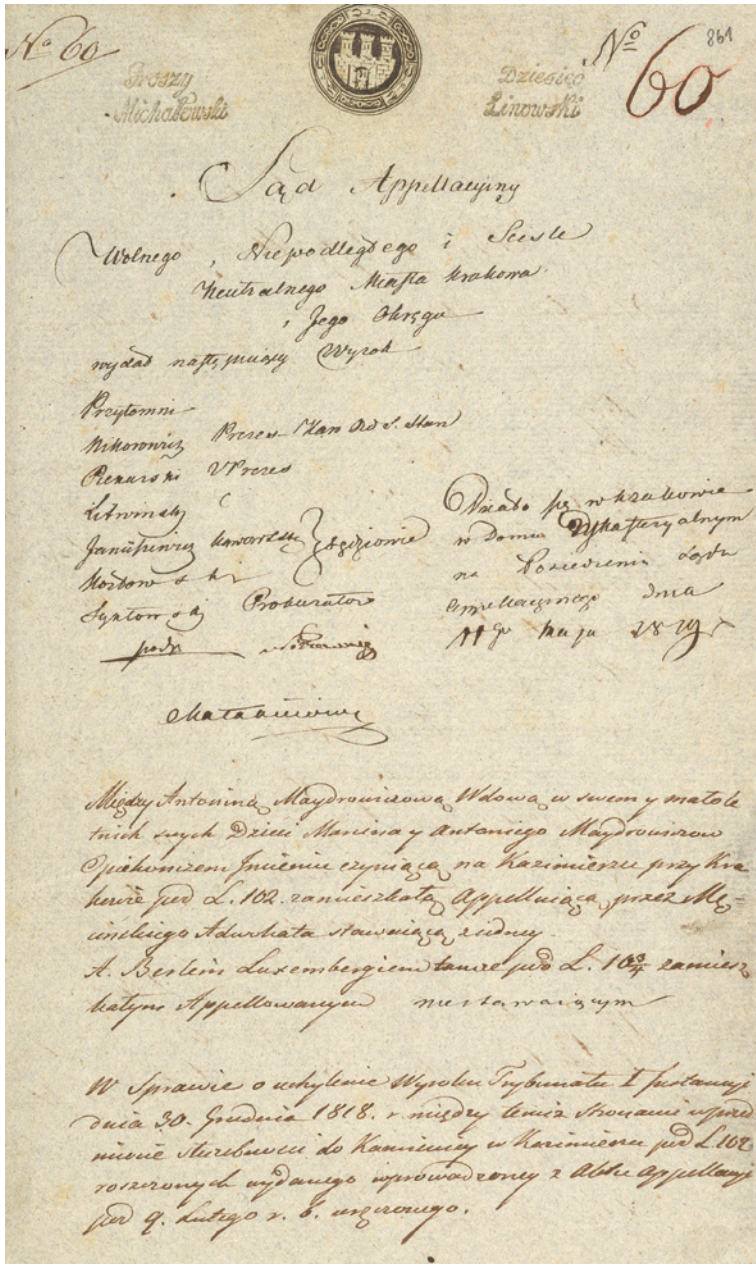 No 60
No 60
861
Groszy
Michałowski
Dziesięć
Linowski
Sąd Appellacyiny
Wolnego, Niepodległego i Sciśle
Neutralnego Miasta Krakowa
i Jego Okręgu
wydał następuiący Wyrok
Przytomni
Nikorowicz Prezes Kan Ord S. Stan
Piekarski VPrezes
Litwinski
Januszewicz Sędziowie
Sądu
Prokurator
podp
Działo się w Krakowie
w Domu Dykasteryalnym
na Posiedzeniu Sądu
Appellacyinego dnia
11go Maja 1819 r
Między Antoniną Maydrowiczową Wdową w swem y małole
tnich swych Dzieci Maryna y Antoniego Maydrowiczow
Opiekunizem Jmieniu czyniącą na Kazimierzu przy Kra
kowie pod L. 102. zamieszkałą Appelluiącą przez Mę
cinskiego Adwokata stawaiącą z iedney
A. Berlem Luxembergiem tamże pod L. 10 3/4 zamiesz
kałym Appellowanym niestawaiącym
W Sprawie o uchylenie Wyroku Trybunału I Jnstancyi
dnia 30. Grudnia 1818. r. między temiż Stronami wprzed
miocie służebności do Kamienicy w Kazimierzu pod L 102
roszczonych wydanego wprowadzoney z Aktu Appellacyi
pod 9. Lutego r. b. wręczonego.